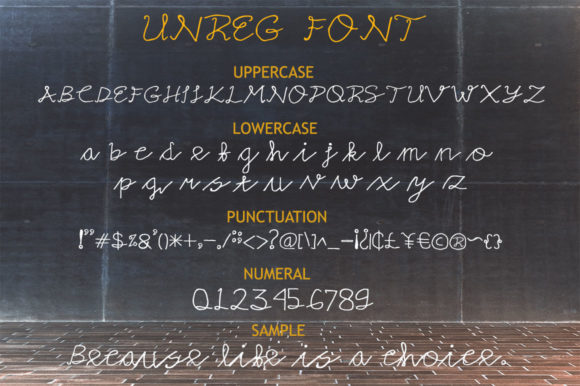 UNREG FONT
UPPERCASE
ABCDEFGHIJKLMNOPQRSTUVWXYZ
LOWERCASE
a b c d e f g h i j k l m n o
p q r s t u v w x y z
PUNCTUATION
!"#$%&'()*+,-./:;<>?@[\]^_—¡¿|¢£¥€©®~{}
NUMERAL
0123456789
SAMPLE
Because life is a choice.